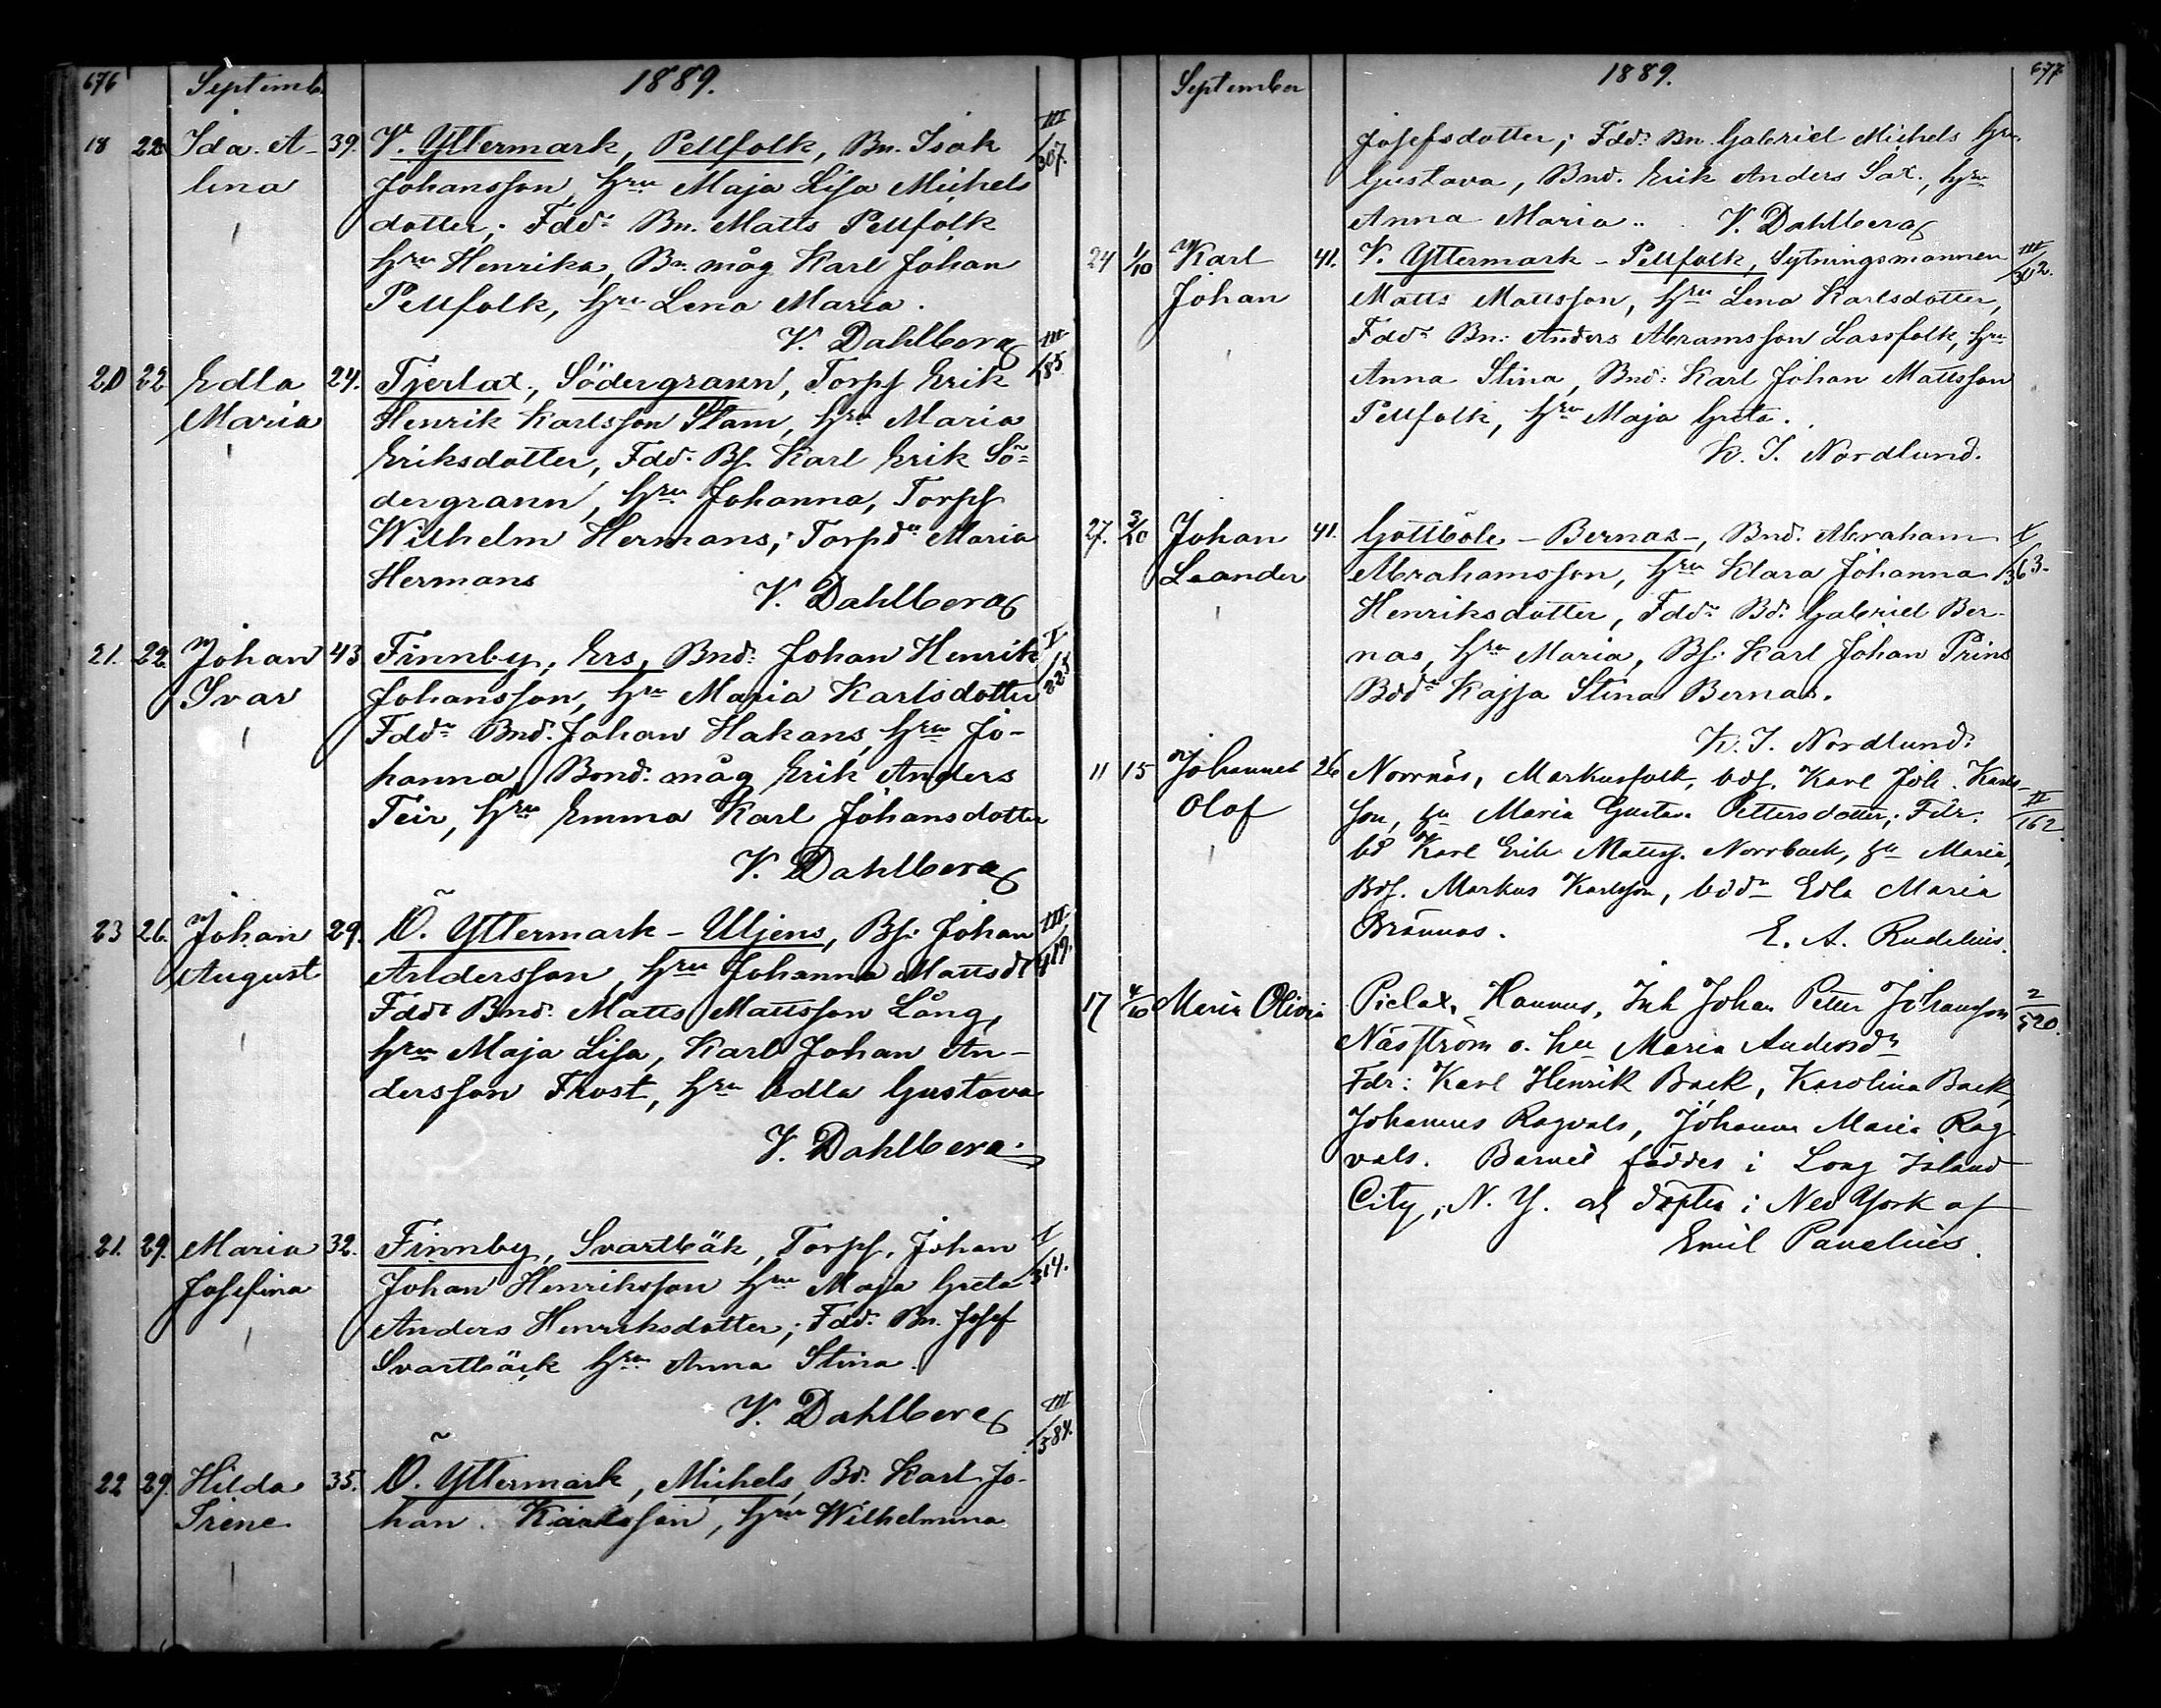 676 Septemb. 1889.
18 22 Ida A- 39. V. Yttermark, Pellfolk, Bn. Isak III/307.
lina Johansson, hru Maja Lisa Michels
dotter; Fddr Bn. Matts Pellfolk
hru Henrika, Bn. måg Karl Johan
Pellfolk, hru Lena Maria.
V. Dahlberg
20 22 Edla 24. Tjerlax, Södergrann, Torpf Erik III/85
Maria Henrik Karlsson Stam, hru Maria
Eriksdotter, Fdd. Bs. Karl Erik Sö-
dergrann, hru Johanna, Torpf
Wilhelm Hermans; Torpdr Maria
Hermans V. Dahlberg
21. 22. Johan 43 Finnby, Ers, Bnd: Johan Henrik I/223
Ivar Johansson, hru Maria Karlsdotter
Fddr Bnd. Johan Hakans, hru Jo-
hanna, Bond. måg Erik Anders
Teir, hru Emma Karl Johansdotter
V. Dahlberg
23 26. Johan 29. Ö. Yttermark - Uljens, Bs: Johan III/419.
August Andersson, hru Johanna Mattsdr
Fddr Bnd. Matts Mattsson Lång,
hru Maja Lisa, Karl Johan An-
dersson Frost, hru Edla Gustava
V. Dahlberg.
21. 29. Maria 32. Finnby, Svartbäk, Torpf. Johan I/314.
Josefina Johan Henriksson hru Maja Greta
Anders Henriksdotter; Fdd: Bn. Josef
Svartbäck hru Anna Stina.
V. Dahlberg
22 29. Hilda 35. Ö. Yttermark, Michels, Bd. Karl Jo- III/384.
Irene han Karlsson, hru Wilhelmina
September 1889. 677
Josefsdotter; Fdd: Bn. Gabriel Michels hru
Gustava, Bnd. Erik Anders Sax., hru
Anna Maria.. V. Dahlberg
24 1/10 Karl 41. V. Yttermark - Pellfolk, Sytningsmannen III/302.
Johan Matts Mattsson, hru Lena Karlsdotter,
Fddr Bn: Anders Abramsson Lassfolk, hru
Anna Stina, Bnd: Karl Johan Mattsson
Pellfolk, hru Maja Greta.
K. I. Nordlund.
27. 3/10 Johan 41. Gottböle - Bernas -, Bnd. Abraham I/363.
Leander Abrahamsson, hru Klara Johanna
Henriksdotter, Fddr Bd. Gabriel Ber-
nas, hru Maria, Bs: Karl Johan Prins
Bddr Kajsa Stina Bernas.
K. I. Nordlund.
11 15 Johannes 26 Norrnäs, Markusfolk, bds. Karl Joh. Karls- II/162.
Olof son, hu Maria Gustava Pettersdotter; Fdr.
bd Karl Erik Matts. Norrback, hu Maria,
Bds. Markus Karlsson, bddr Edla Maria
Brännas. E. A. Rudelius.
17 4/10 Maria Olivia Pielax, Hannus, Inh Johan Petter Johansson 2/520.
Näsström o. hu Maria Andersdr
Fdr: Karl Henrik Back, Karolina Back,
Johannes Ragvals, Johanna Maria Rag-
vals. Barnet föddes i Long Island
City, N. Y. och döptes i New York af
Emil Panelius.